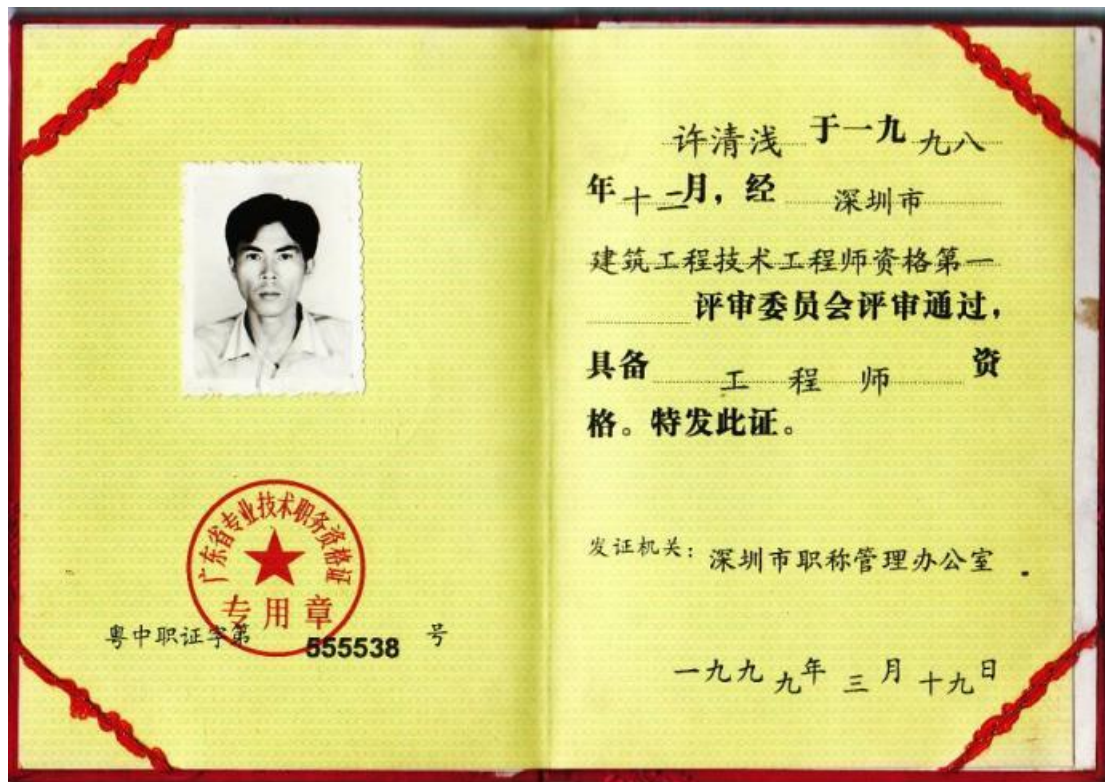 广东省专业技术职务资格证
专用章
粤中职证字第 555538 号
许清浅 于一九九八
年十二月，经 深圳市
建筑工程技术工程师资格第一
评审委员会评审通过，
具备 工程师 资
格。特发此证。
发证机关：深圳市职称管理办公室
一九九九年三月十九日